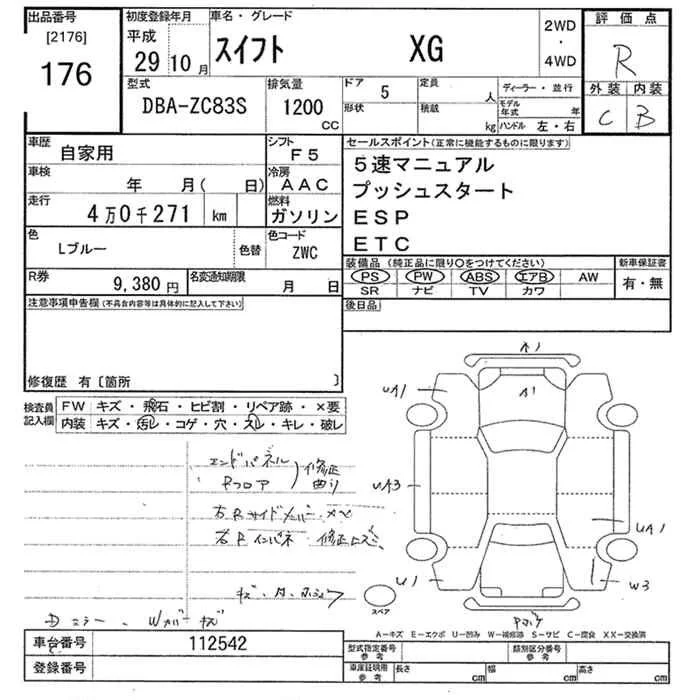 出品番号
[2176]
176
初度登録年月
平成
29 10 月
車名・グレード
スイフト XG
2WD
・
4WD
評価点
R
外装 内装
C B
型式
DBA-ZC83S
排気量
1200
CC
ドア
5
形状
定員
人
積載
kg
ディーラー・並行
モデル年式 年
ハンドル 左・右
車歴
自家用
シフト
F5
車検
年 月( 日)
冷房
AAC
走行
4万0千271 km
燃料
ガソリン
色
Lブルー
色替
色コード
ZWC
R券
9,380 円
名変通知期限
月 日
セールスポイント(正常に機能するものに限ります)
5速マニュアル
プッシュスタート
ESP
ETC
装備品 (純正品に限り○をつけてください)
PS PW ABS エアB AW
SR ナビ TV カワ
新車保証書
有・無
後日品
注意事項申告欄(不具合内容等は具体的に記入して下さい)
修復歴 有〔箇所 〕
検査員記入欄
FW キズ・飛石・ヒビ割・リペア跡・×要
内装 キズ・汚レ・コゲ・穴・スレ・キレ・破レ
エンドパネル
Rフロア
修正
曲り
右Rサイドメンバー
右Rインパネ 修正
Dミラー、Wカバーキズ
スペア
A1
A1
UA1
UA3
UA1
U1
W3
A-キズ E-エクボ U-凹み W-補修跡 S-サビ C-腐食 XX-交換済
車台番号
112542
登録番号
型式指定番号
参考
類別区分番号
参考
車庫証明用
参考
長さ cm
幅 cm
高さ cm